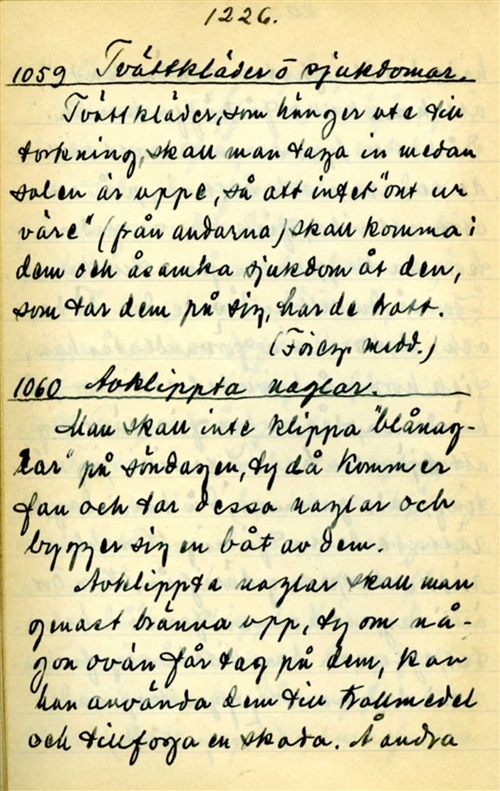 1226.
1059 Tvättkläder o sjukdomar.
Tvättkläder, som hänger ute till
torkning, skall man taga in medan
solen är uppe, så att intet "ont ur
väre" (från andarna) skall komma i
dem och åsamka sjukdom åt den,
som tar dem på sig, har de trott.
(Föreg. medd.)
1060 Avklippta naglar.
Man skall inte klippa "blånag-
lar" på söndagen, ty då kommer
fan och tar dessa naglar och
bygger sig en båt av dem.
Avklippta naglar skall man
genast bränna upp, ty om nå-
gon ovän får tag på dem, kan
han använda dem till trollmedel
och tillfoga en skada. Å andra